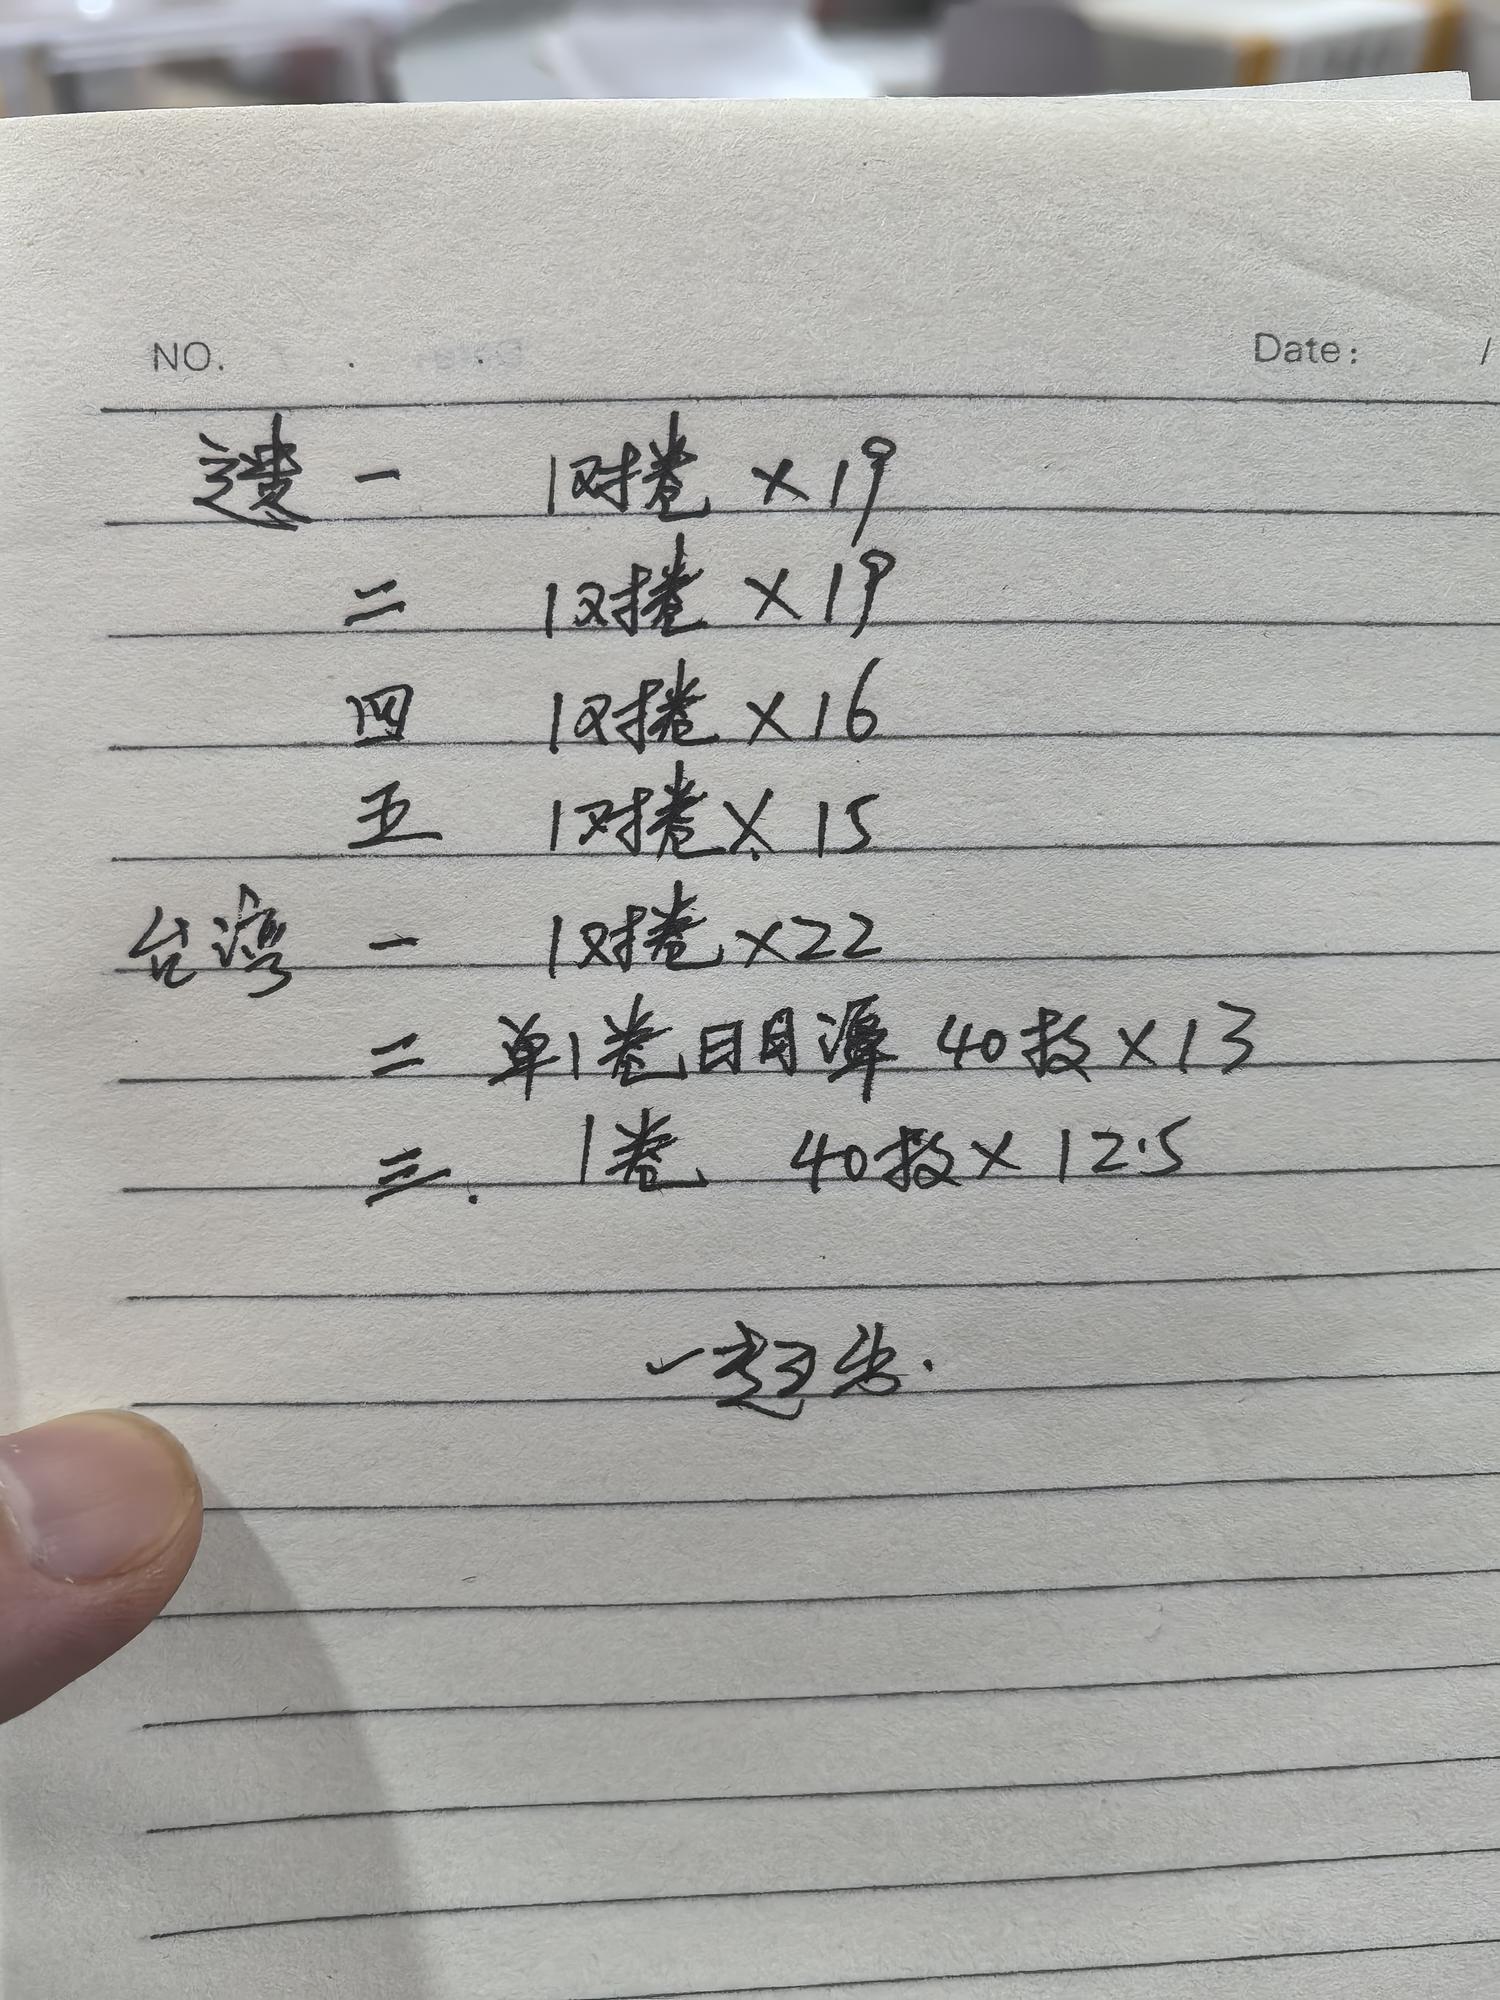 NO. Date: /
遗 一 1对卷 ×19
二 1对卷 ×19
四 1对卷 ×16
五 1对卷 × 15
台湾 一 1对卷 ×22
二 单1卷日月潭 40枚×13
三. 1卷 40枚× 12.5
一起出.